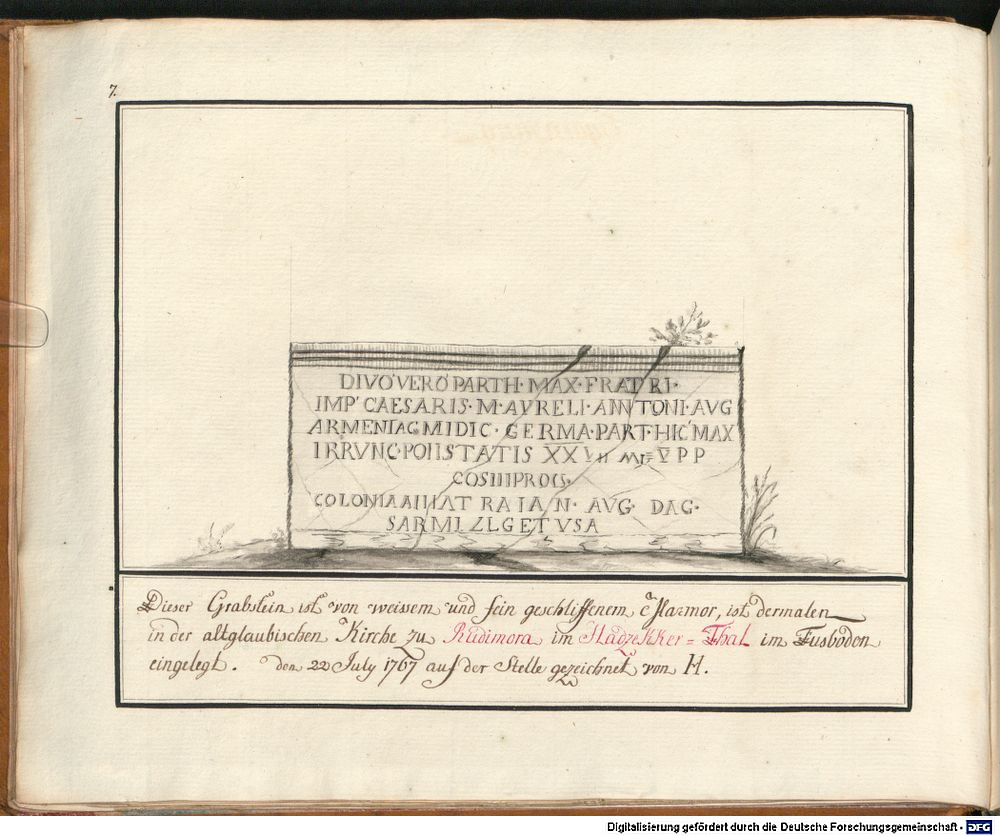 7.
DIVO VERO PARTH · MAX · FRATRI ·
IMP' CAESARIS · M · AVRELI · ANNTONI · AVG
ARMENIACMIDIC · GERMA · PART · HIC MAX
IRRVNC · POIISTATIS XX VII V P P
COSIIIPROCS ·
COLONIA AIIIAT RAIAN · AVG · DAC ·
SARMI ZLGETUSA
Dieser Grabstein ist von weissem und fein geschliffenem Marmor, ist dermalen
in der altglaubischen Kirche zu Rudimora im Hadzekker = Thal im Fusboden
eingelegt. den 22 July 1767 auf der Stelle gezeichnet von H.
Digitalisierung gefördert durch die Deutsche Forschungsgemeinschaft - DFG